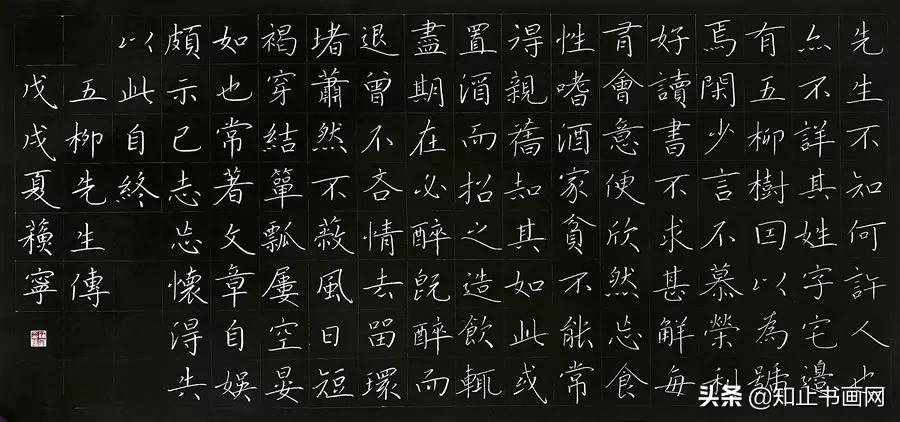 先生不知何許人也
亦不詳其姓字宅邊
有五柳樹因以為號
焉閑少言不慕榮利
好讀書不求甚解每
有會意便欣然忘食
性嗜酒家貧不能常
得親舊知其如此或
置酒而招之造飲輒
盡期在必醉既醉而
退曾不吝情去留環
堵蕭然不蔽風日短
褐穿結簞瓢屢空晏
如也常著文章自娛
頗示己志忘懷得失
以此自終
五柳先生傳
戊戌夏賴寧
头条 @知止书画网